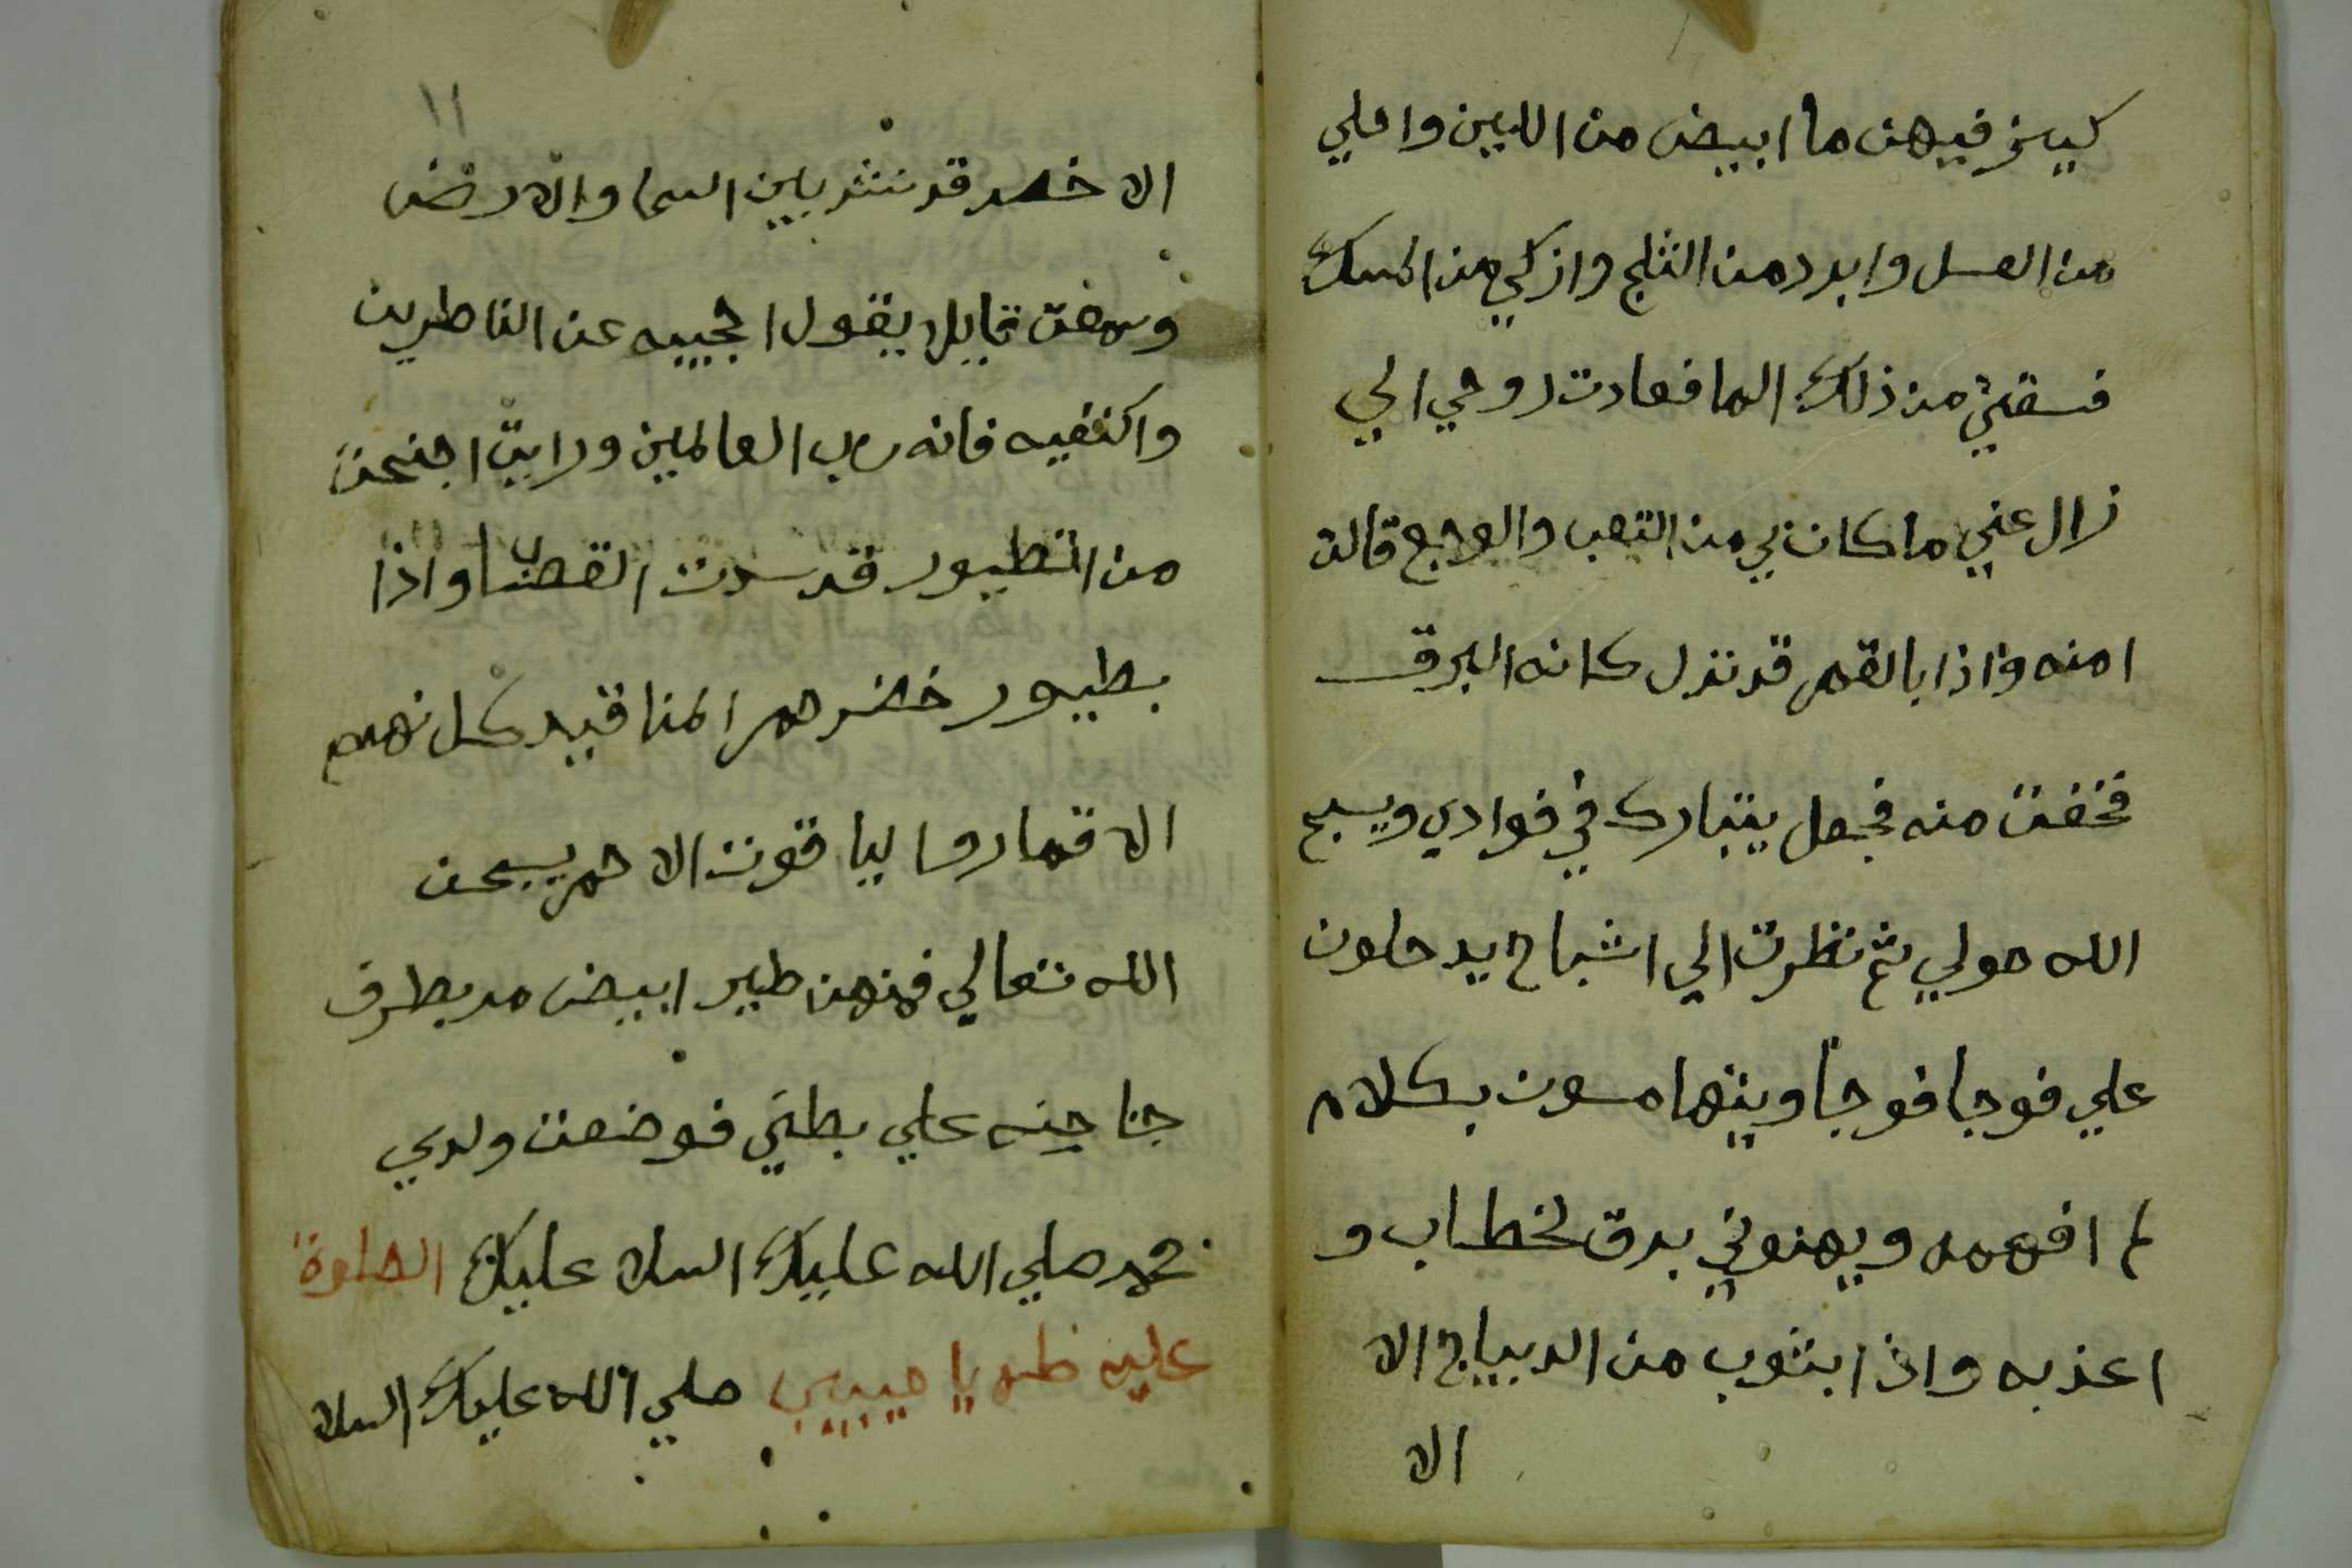 كيزفيهن ما ابيض من اللبن واحلي
من العسل وابرد من الثلج وازكي من المسك
فسقتني من ذلك الما فعادت روحي الي
زال عني ما كان بي من التعب والوجع قالت
امنه واذا بالقمر قد نزل كانه البرق
فخفت منه فجعل يتبارك في فوادي ويسبح
الله حولي ثم نظرت الي اشباح يدخلون
علي فوجا فوجا ويتهامسون بكلام
لم افهمه ويهنوني برق لخطاب و
اعذبه واذا بثوب من الديباج الا
الا
١١
الا خضر قد نشر بين السما والارض
وسمعت قايل يقول احجبيه عن الناظرين
واكنفيه فانه رب العالمين ورايت اجنحت
من الطيور قد سدت القضا واذا
بطيور خضر حمر المناقيد كل نهم
الا قمار وا ليا قوت الا حمر يسبحن
الله تعالي فمنهن طير ابيض مر بطرف
جناحنه علي بطني فوضعت ولدي
محمد صلي الله عليك السلا عليك الصلوة
عليه طه يا حبيبي صلي الله عليك السلا